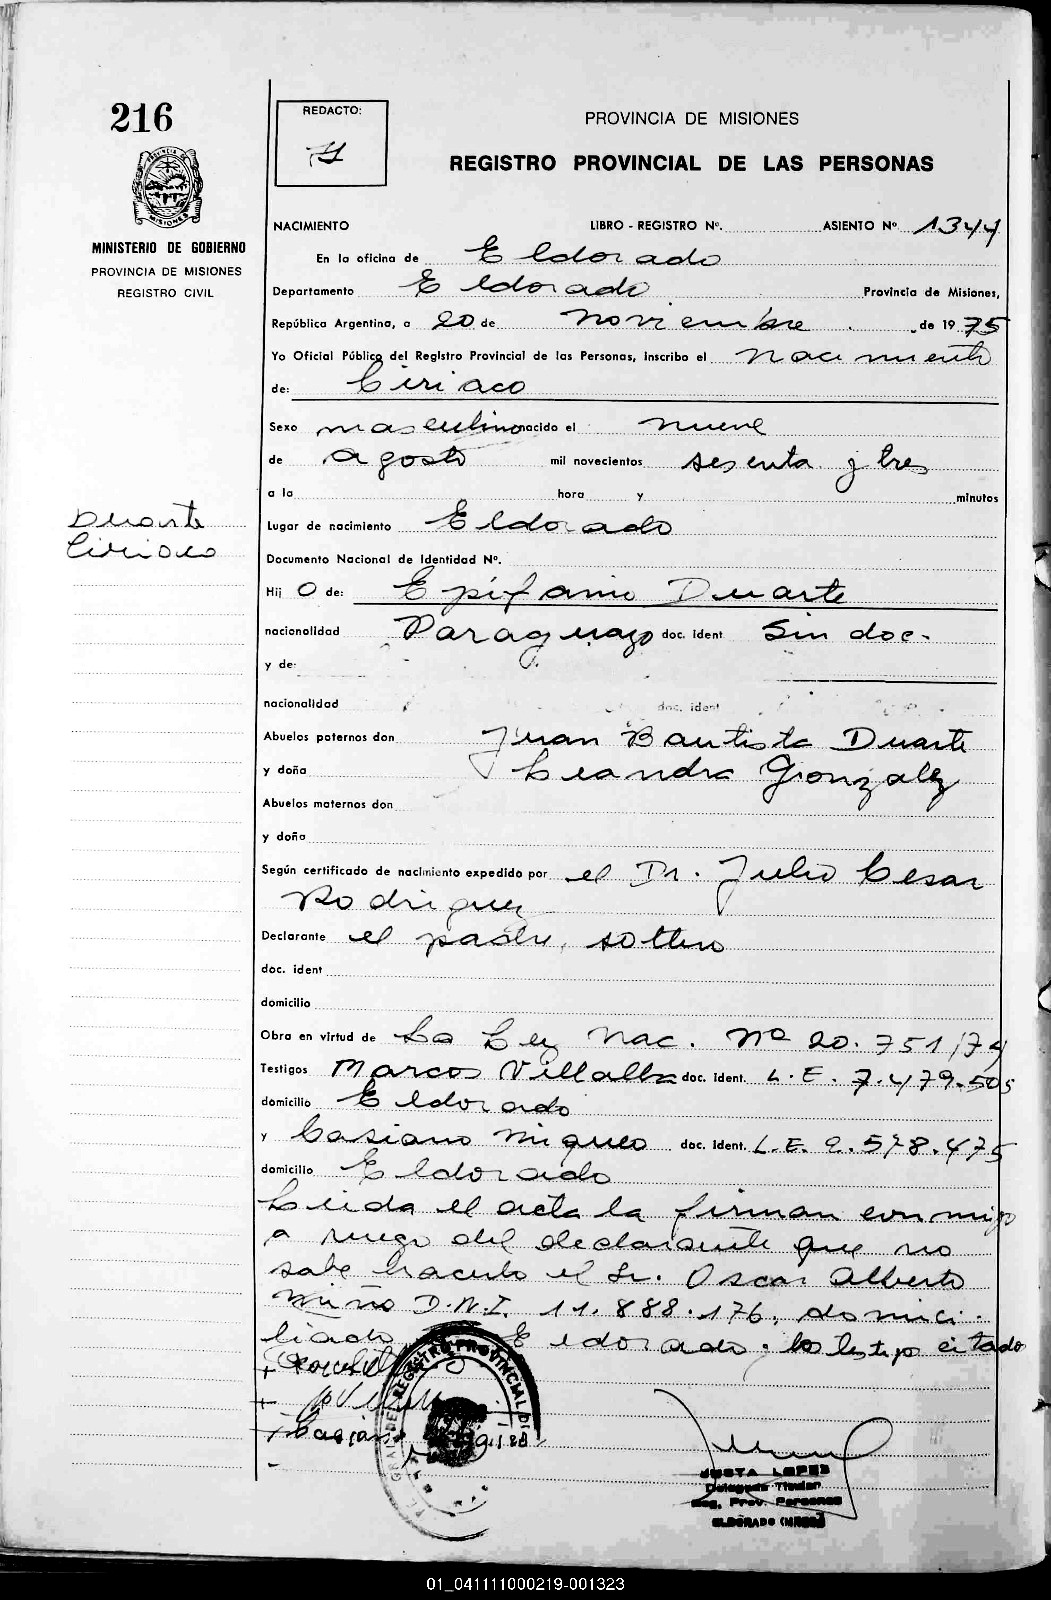 216
REDACTO:
PROVINCIA DE MISIONES
REGISTRO PROVINCIAL DE LAS PERSONAS
MINISTERIO DE GOBIERNO
PROVINCIA DE MISIONES
REGISTRO CIVIL
NACIMIENTO LIBRO - REGISTRO Nº. ASIENTO Nº 1344
En la oficina de Eldorado
Departamento Eldorado Provincia de Misiones,
República Argentina, a 20 de Noviembre de 1975
Yo Oficial Público del Registro Provincial de las Personas, inscribo el Nacimiento
de: Ciriaco
Sexo masculino nacido el nueve
de agosto mil novecientos sesenta y tres
a la hora y minutos
Duarte
Ciriaco
Lugar de nacimiento Eldorado
Documento Nacional de Identidad Nº.
Hij o de: Epifanio Duarte
nacionalidad Paraguayo doc. ident Sin doc.
y de:
nacionalidad doc. ident
Abuelos paternos don Juan Bautista Duarte
y doña Leandra Gonzalez
Abuelos maternos don
y doña
Según certificado de nacimiento expedido por el Dr. Julio Cesar
Rodriguez
Declarante el padre, soltero
doc. ident
domicilio
Obra en virtud de La Ley Nac. Nº 20.751/74
Testigos Marcos Villalba doc. ident. L.E. 7.479.505
domicilio Eldorado
y Casiano doc. ident. L.E. 2.578.475
domicilio Eldorado
Leida el acta la firman conmigo
a ruego del declarante que no
sabe hacerlo el Sr. Oscar Alberto
Miño D.N.I. 11.888.176, domici-
liado Eldorado, los testigo citado
REGISTRO PROVINCIAL DE
JUSTA LOPEZ
Delegada Titular
Reg. Prov. Personas
ELDORADO (MNES)
01_041111000219-001323